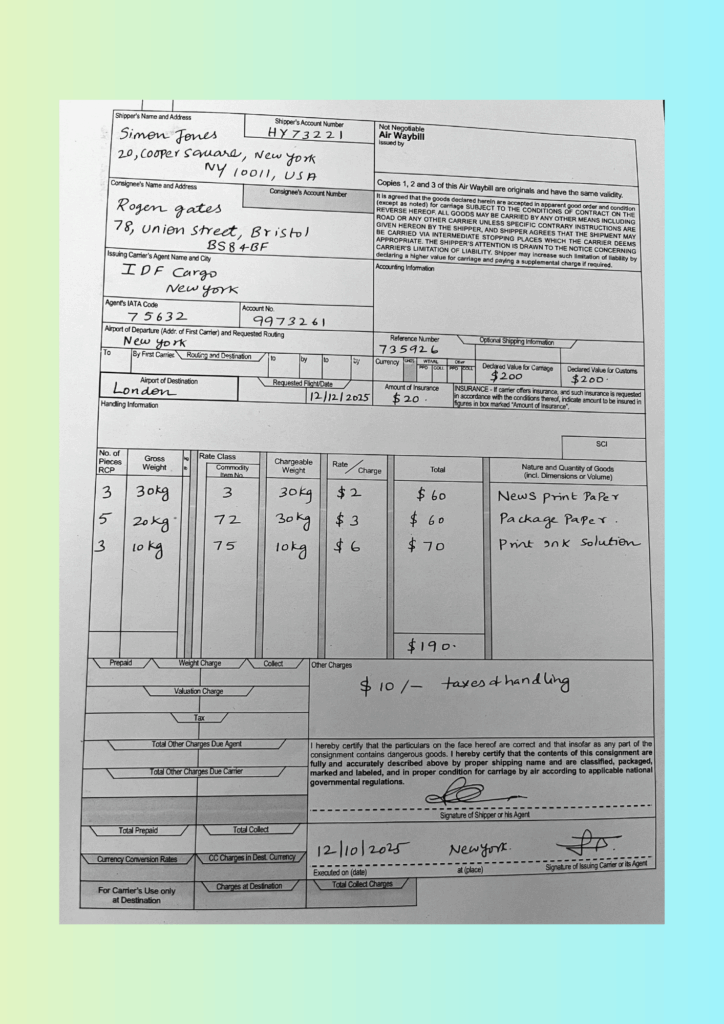 Shipper's Name and Address
Simon Jones
20, Cooper Square, New york
NY 10011, USA
Shipper's Account Number
HY73221
Not Negotiable
Air Waybill
Issued by
Copies 1, 2 and 3 of this Air Waybill are originals and have the same validity.
Consignee's Name and Address
Rogen gates
78, Union Street, Bristol
BS8 4BF
Consignee's Account Number
It is agreed that the goods declared herein are accepted in apparent good order and condition
(except as noted) for carriage SUBJECT TO THE CONDITIONS OF CONTRACT ON THE
REVERSE HEREOF. ALL GOODS MAY BE CARRIED BY ANY OTHER MEANS INCLUDING
ROAD OR ANY OTHER CARRIER UNLESS SPECIFIC CONTRARY INSTRUCTIONS ARE
GIVEN HEREON BY THE SHIPPER, AND SHIPPER AGREES THAT THE SHIPMENT MAY
BE CARRIED VIA INTERMEDIATE STOPPING PLACES WHICH THE CARRIER DEEMS
APPROPRIATE. THE SHIPPER'S ATTENTION IS DRAWN TO THE NOTICE CONCERNING
CARRIER'S LIMITATION OF LIABILITY. Shipper may increase such limitation of liability by
declaring a higher value for carriage and paying a supplemental charge if required.
Issuing Carrier's Agent Name and City
IDF Cargo
New york
Accounting Information
Agent's IATA Code
75632
Account No.
9973261
Airport of Departure (Addr. of First Carrier) and Requested Routing
New york
Reference Number
735926
Optional Shipping Information
To
By First Carrier
Routing and Destination
to
by
to
by
Currency
CHGS
WT/VAL
PPD
COLL
Other
PPD
COLL
Declared Value for Carriage
$200
Declared Value for Customs
$200.
Airport of Destination
London
Requested Flight/Date
12/12/2025
Amount of Insurance
$20.
INSURANCE - If carrier offers insurance, and such insurance is requested
in accordance with the conditions thereof, indicate amount to be insured in
figures in box marked "Amount of Insurance".
Handling Information
SCI
No. of
Pieces
RCP
Gross
Weight
Rate Class
Commodity
Item No.
Chargeable
Weight
Rate / Charge
Total
Nature and Quantity of Goods
(incl. Dimensions or Volume)
3 30kg 3 30kg $2 $60 News print PaPer
5 20kg 72 30kg $3 $60 Package Paper.
3 10kg 75 10kg $6 $70 Print Ink Solution
$190.
Prepaid
Weight Charge
Collect
Other Charges
$10/- taxes & handling
Valuation Charge
Tax
Total Other Charges Due Agent
Total Other Charges Due Carrier
I hereby certify that the particulars on the face hereof are correct and that insofar as any part of the
consignment contains dangerous goods. I hereby certify that the contents of this consignment are
fully and accurately described above by proper shipping name and are classified, packaged,
marked and labeled, and in proper condition for carriage by air according to applicable national
governmental regulations.
Signature of Shipper or his Agent
Total Prepaid
Total Collect
Currency Conversion Rates
CC Charges in Dest. Currency
12/10/2025 Newyork.
Executed on (date)
at (place)
Signature of Issuing Carrier or its Agent
For Carrier's Use only
at Destination
Charges at Destination
Total Collect Charges